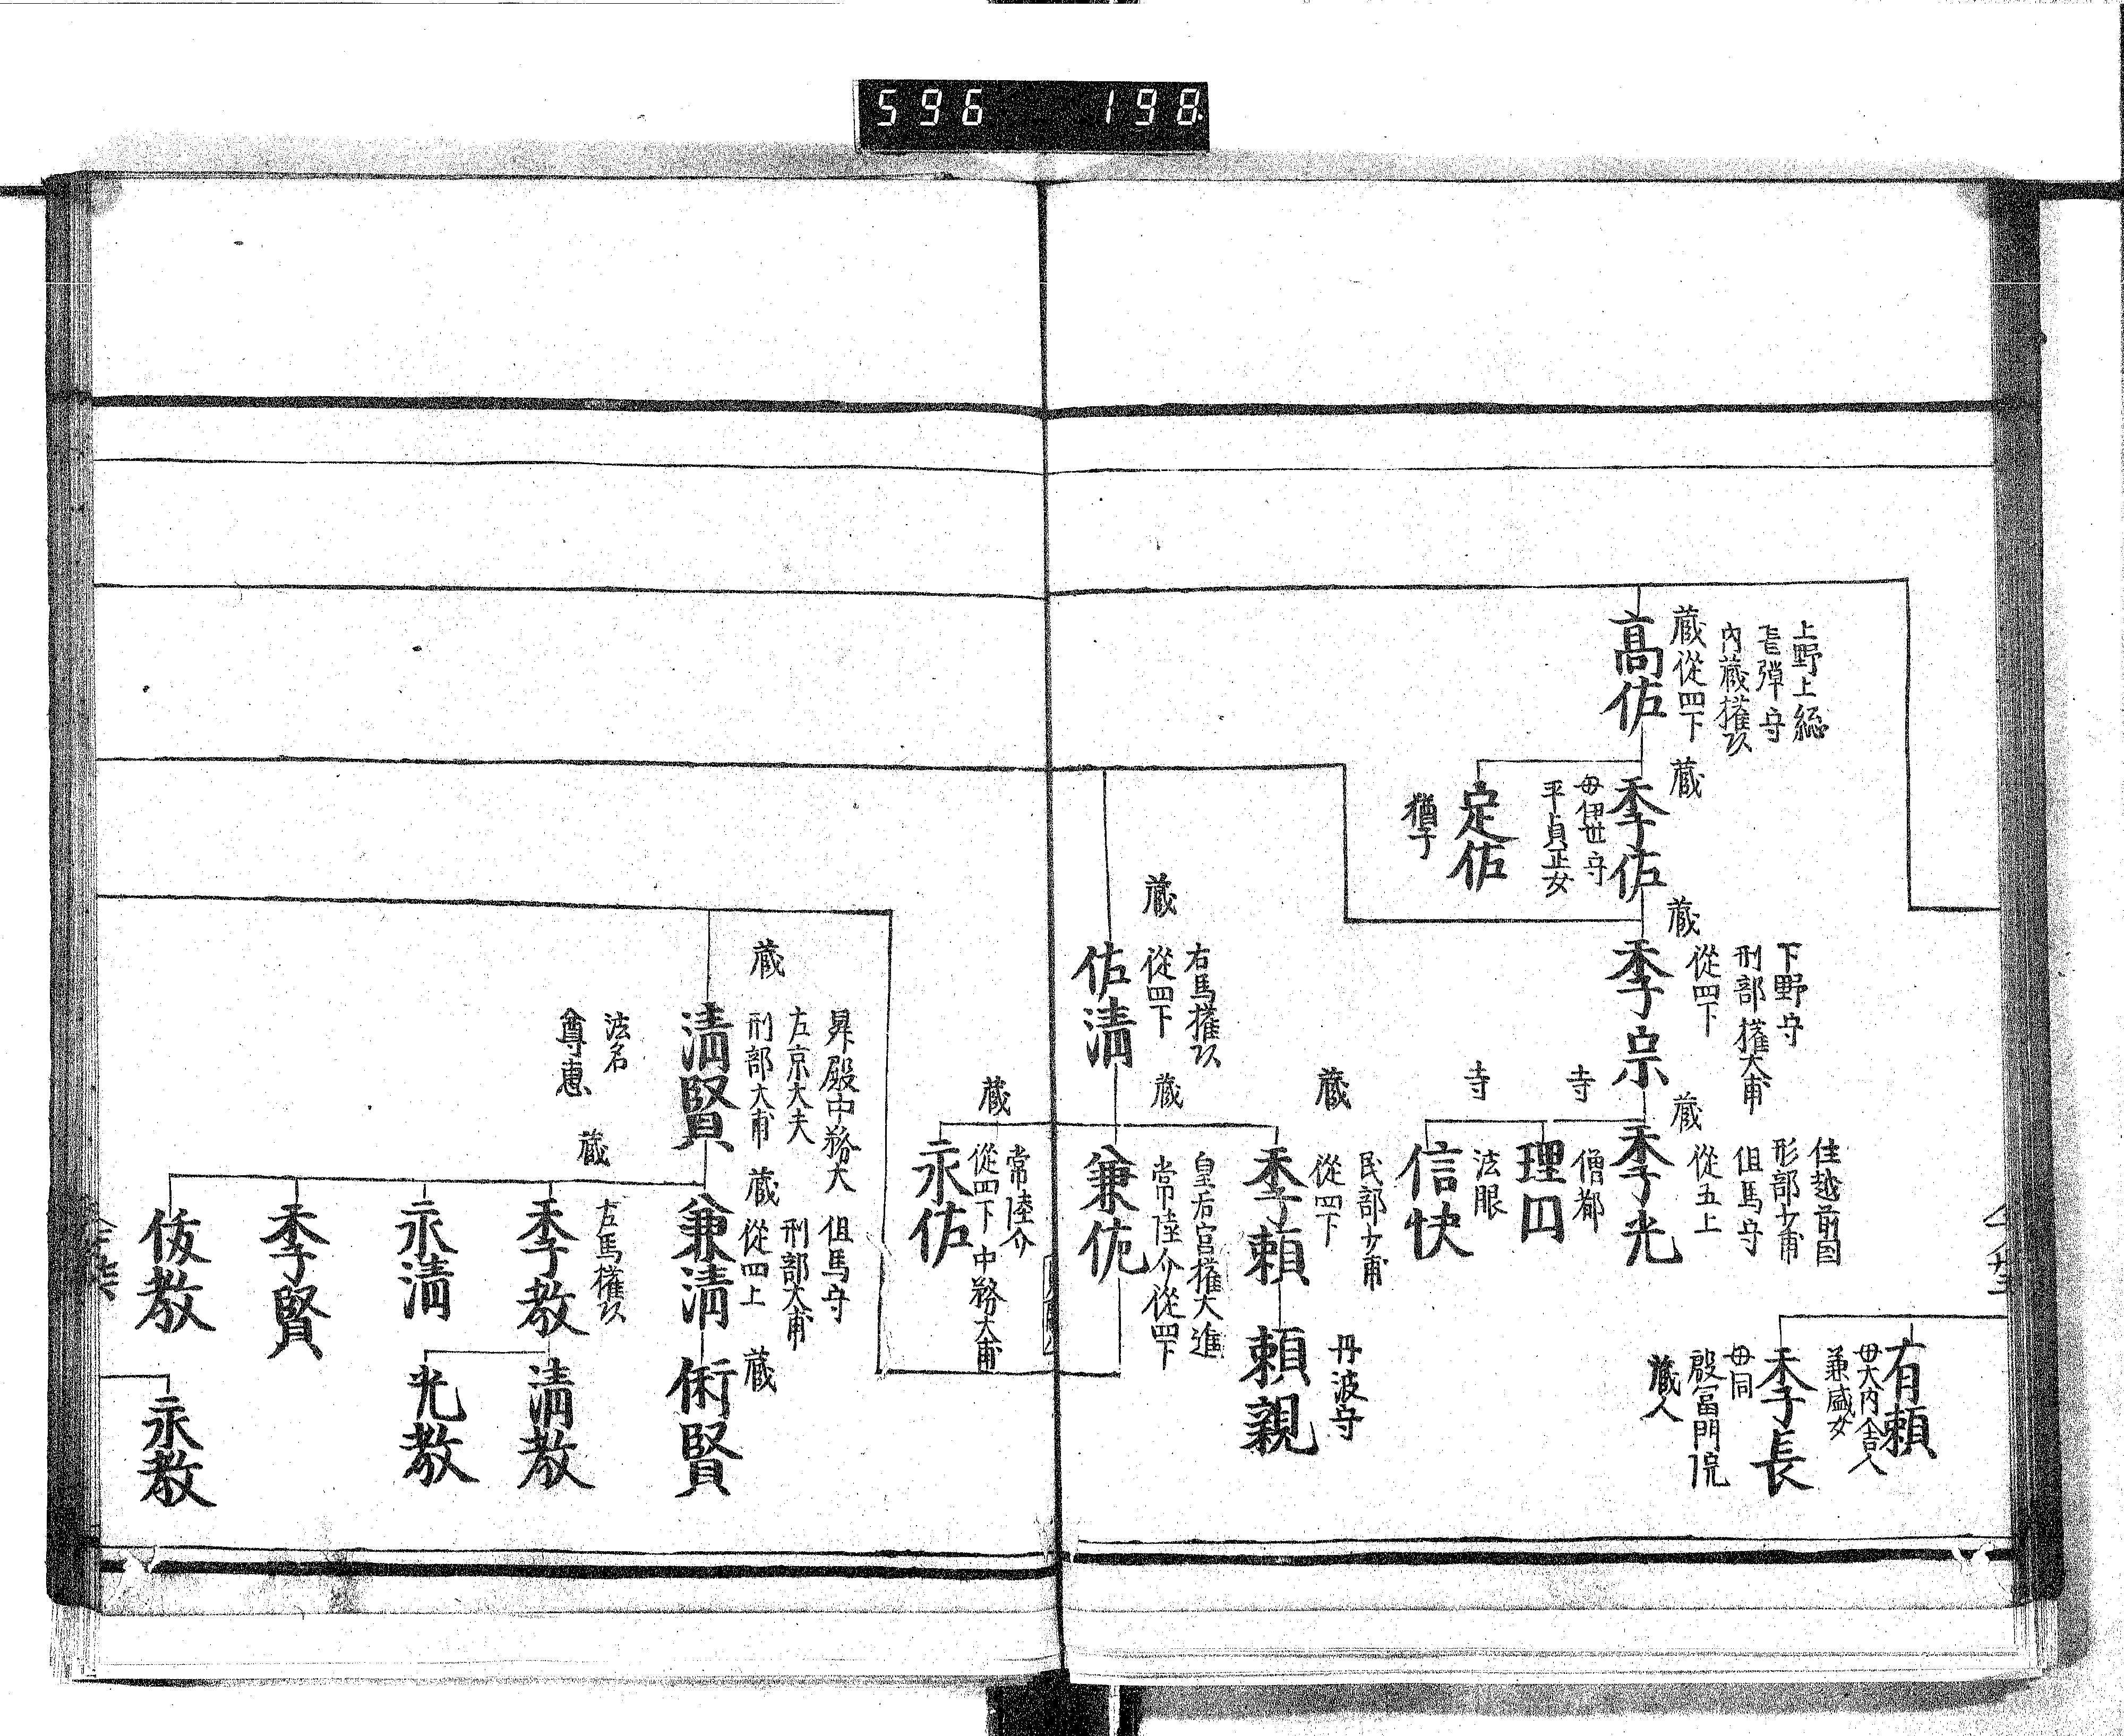 596 198
有頼
母大内舎人
兼盛女
季長
母同
殷冨門院
蔵人
上野上総
長弾守
内蔵權以
蔵從四下
高佐
蔵
季佐
母伊世守
平貞正女
定佐
猶子
蔵
下野守
刑部權大甫
從四下
季宗
蔵
住越前国
形部少甫
但馬守
從五上
季光
寺
僧都
理囗
寺
法眼
信快
蔵
民部少甫
從四下
季頼
丹波守
頼親
蔵
右馬權以
從四下
佐清
蔵
皇后宮權大進
常陸介從四下
兼佐
蔵
常陸介
從四下中務大甫
永佐
蔵
昇殿中務大
左京大夫
刑部大甫
清賢
法名
尊恵
蔵
但馬守
刑部大甫
從四上
兼清
蔵
俌賢
蔵
左馬權以
季教
清教
光教
永清
季賢
俊教
永教